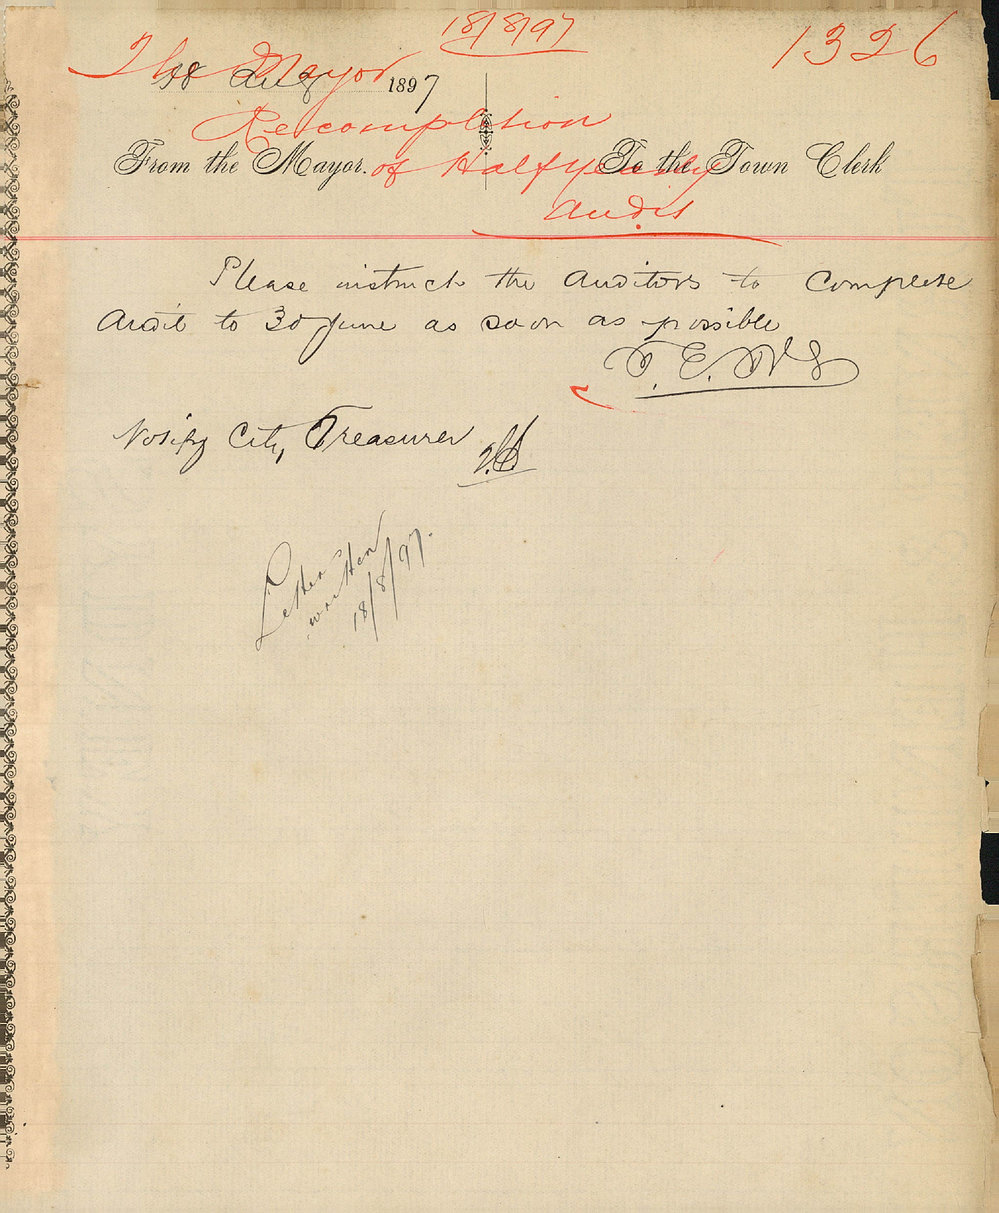 18/8/97
1326
The Mayor
18 Aug 1897
Re completion
From the Mayor. To the Town Clerk
of Half yearly
Audit
Please instruct the Auditors to Complete
Audit to 30 June as soon as possible
Notify City Treasurer
Letter
written
18/8/97.